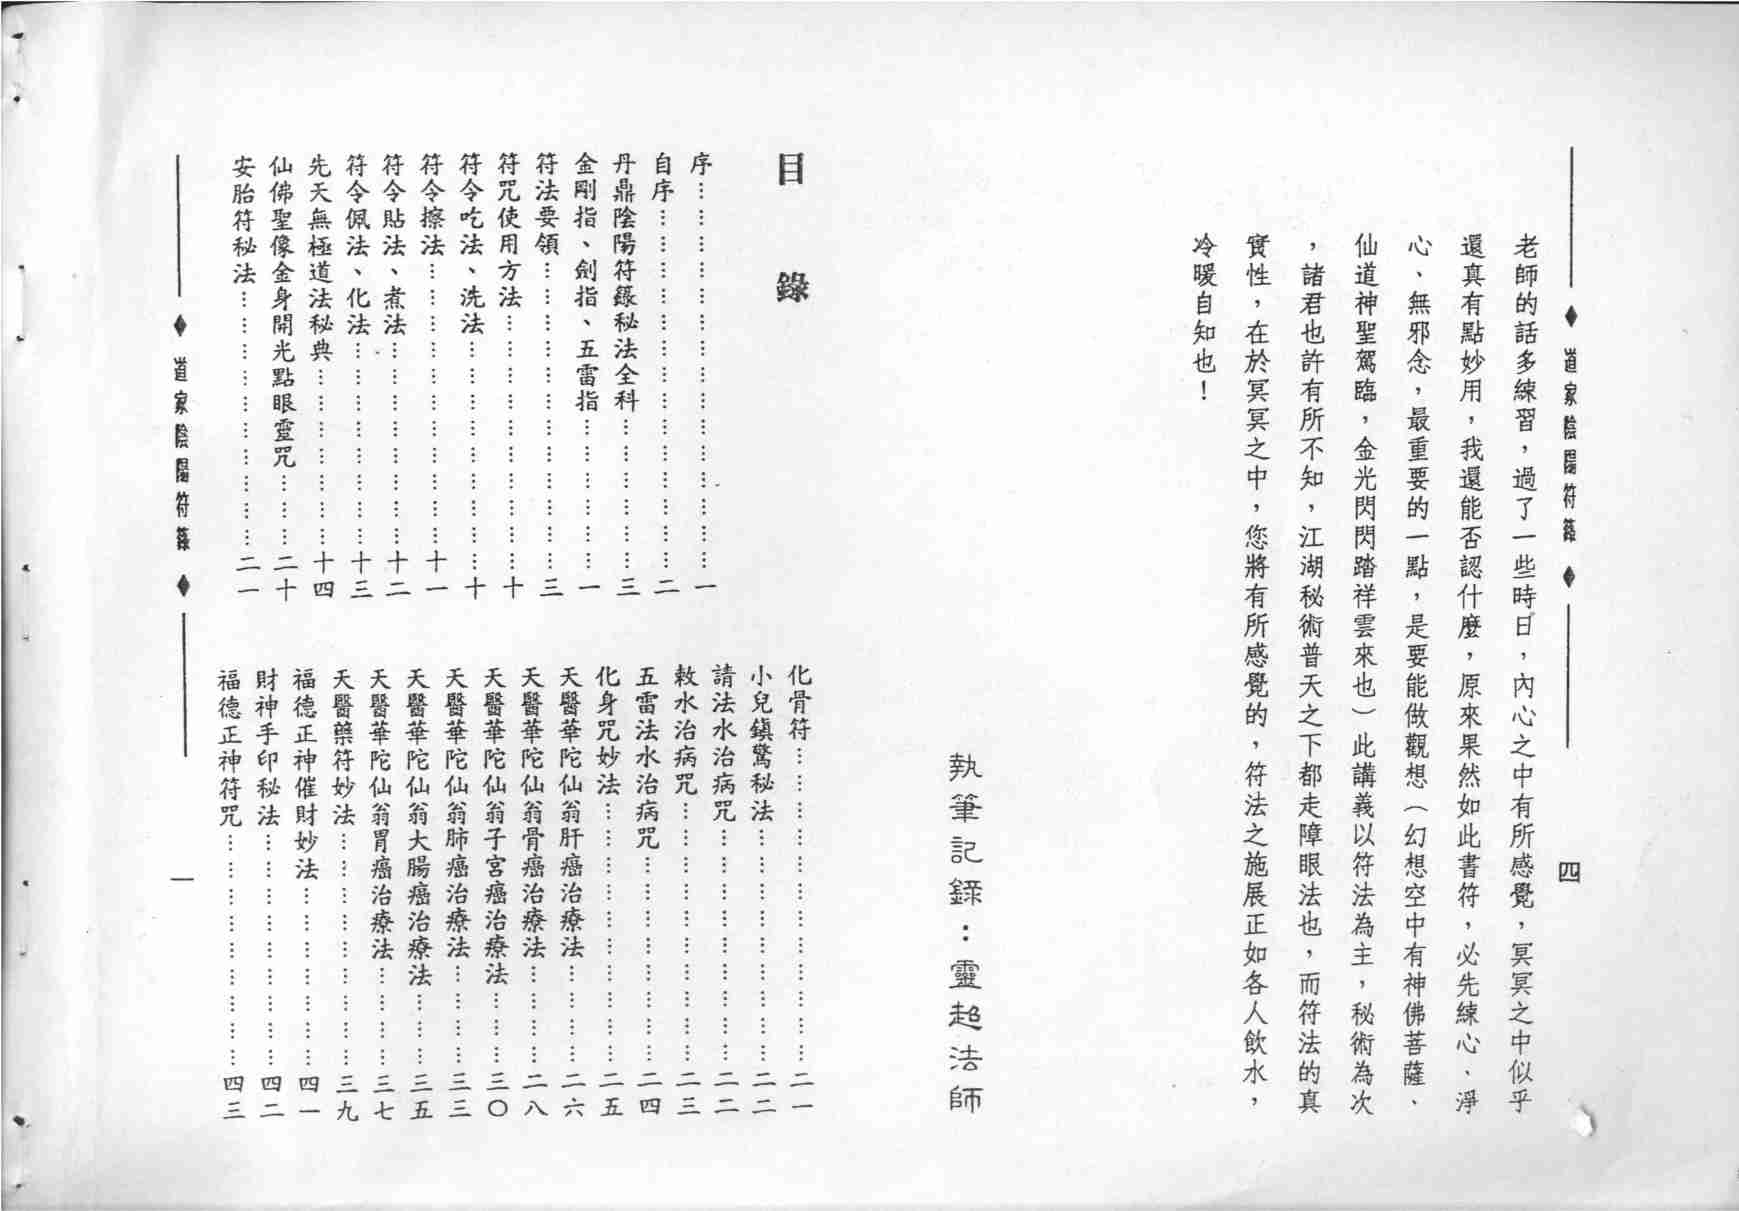 ◆道家陰陽符籙◆
四
老師的話多練習，過了一些時日，內心之中有所感覺，冥冥之中似乎
還真有點妙用，我還能否認什麼，原來果然如此書符，必先練心、淨
心、無邪念，最重要的一點，是要能做觀想（幻想空中有神佛菩薩、
仙道神聖駕臨，金光閃閃踏祥雲來也）此講義以符法為主，秘術為次
，諸君也許有所不知，江湖秘術普天之下都走障眼法也，而符法的真
實性，在於冥冥之中，您將有所感覺的，符法之施展正如各人飲水，
冷暖自知也！
執筆記錄：靈超法師
目錄
序……………………………一
自序……………………………二
丹鼎陰陽符籙秘法全科……………三
金剛指、劍指、五雷指……………一
符法要領……………………………三
符咒使用方法……………………十
符令吃法、洗法……………………十
符令擦法……………………………十一
符令貼法、煮法……………………十二
符令佩法、化法……………………十三
先天無極道法秘典…………………十四
仙佛聖像金身開光點眼靈咒………二十
安胎符秘法…………………………二一
化骨符……………………………二一
小兒鎮驚秘法……………………二二
請法水治病咒……………………二二
敕水治病咒………………………二三
五雷法水治病咒…………………二四
化身咒妙法………………………二五
天醫華陀仙翁肝癌治療法………二六
天醫華陀仙翁骨癌治療法………二八
天醫華陀仙翁子宮癌治療法……三〇
天醫華陀仙翁肺癌治療法………三三
天醫華陀仙翁大腸癌治療法……三五
天醫華陀仙翁胃癌治療法………三七
天醫藥符妙法……………………三九
福德正神催財妙法………………四一
財神手印秘法……………………四二
福德正神符咒……………………四三
◆道家陰陽符籙◆
一